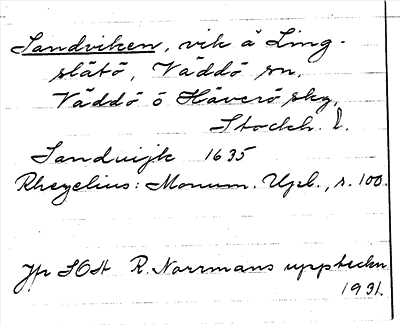 Sandviken, vik å Ling-
slätö, Väddö sn.
Väddö o Häverö sky,
Stockh. l.
Sandwijk 1635
Rhezelius: Monum. Upl., s. 100.
Jfr SOA R. Norrmans uppteckn
1931.